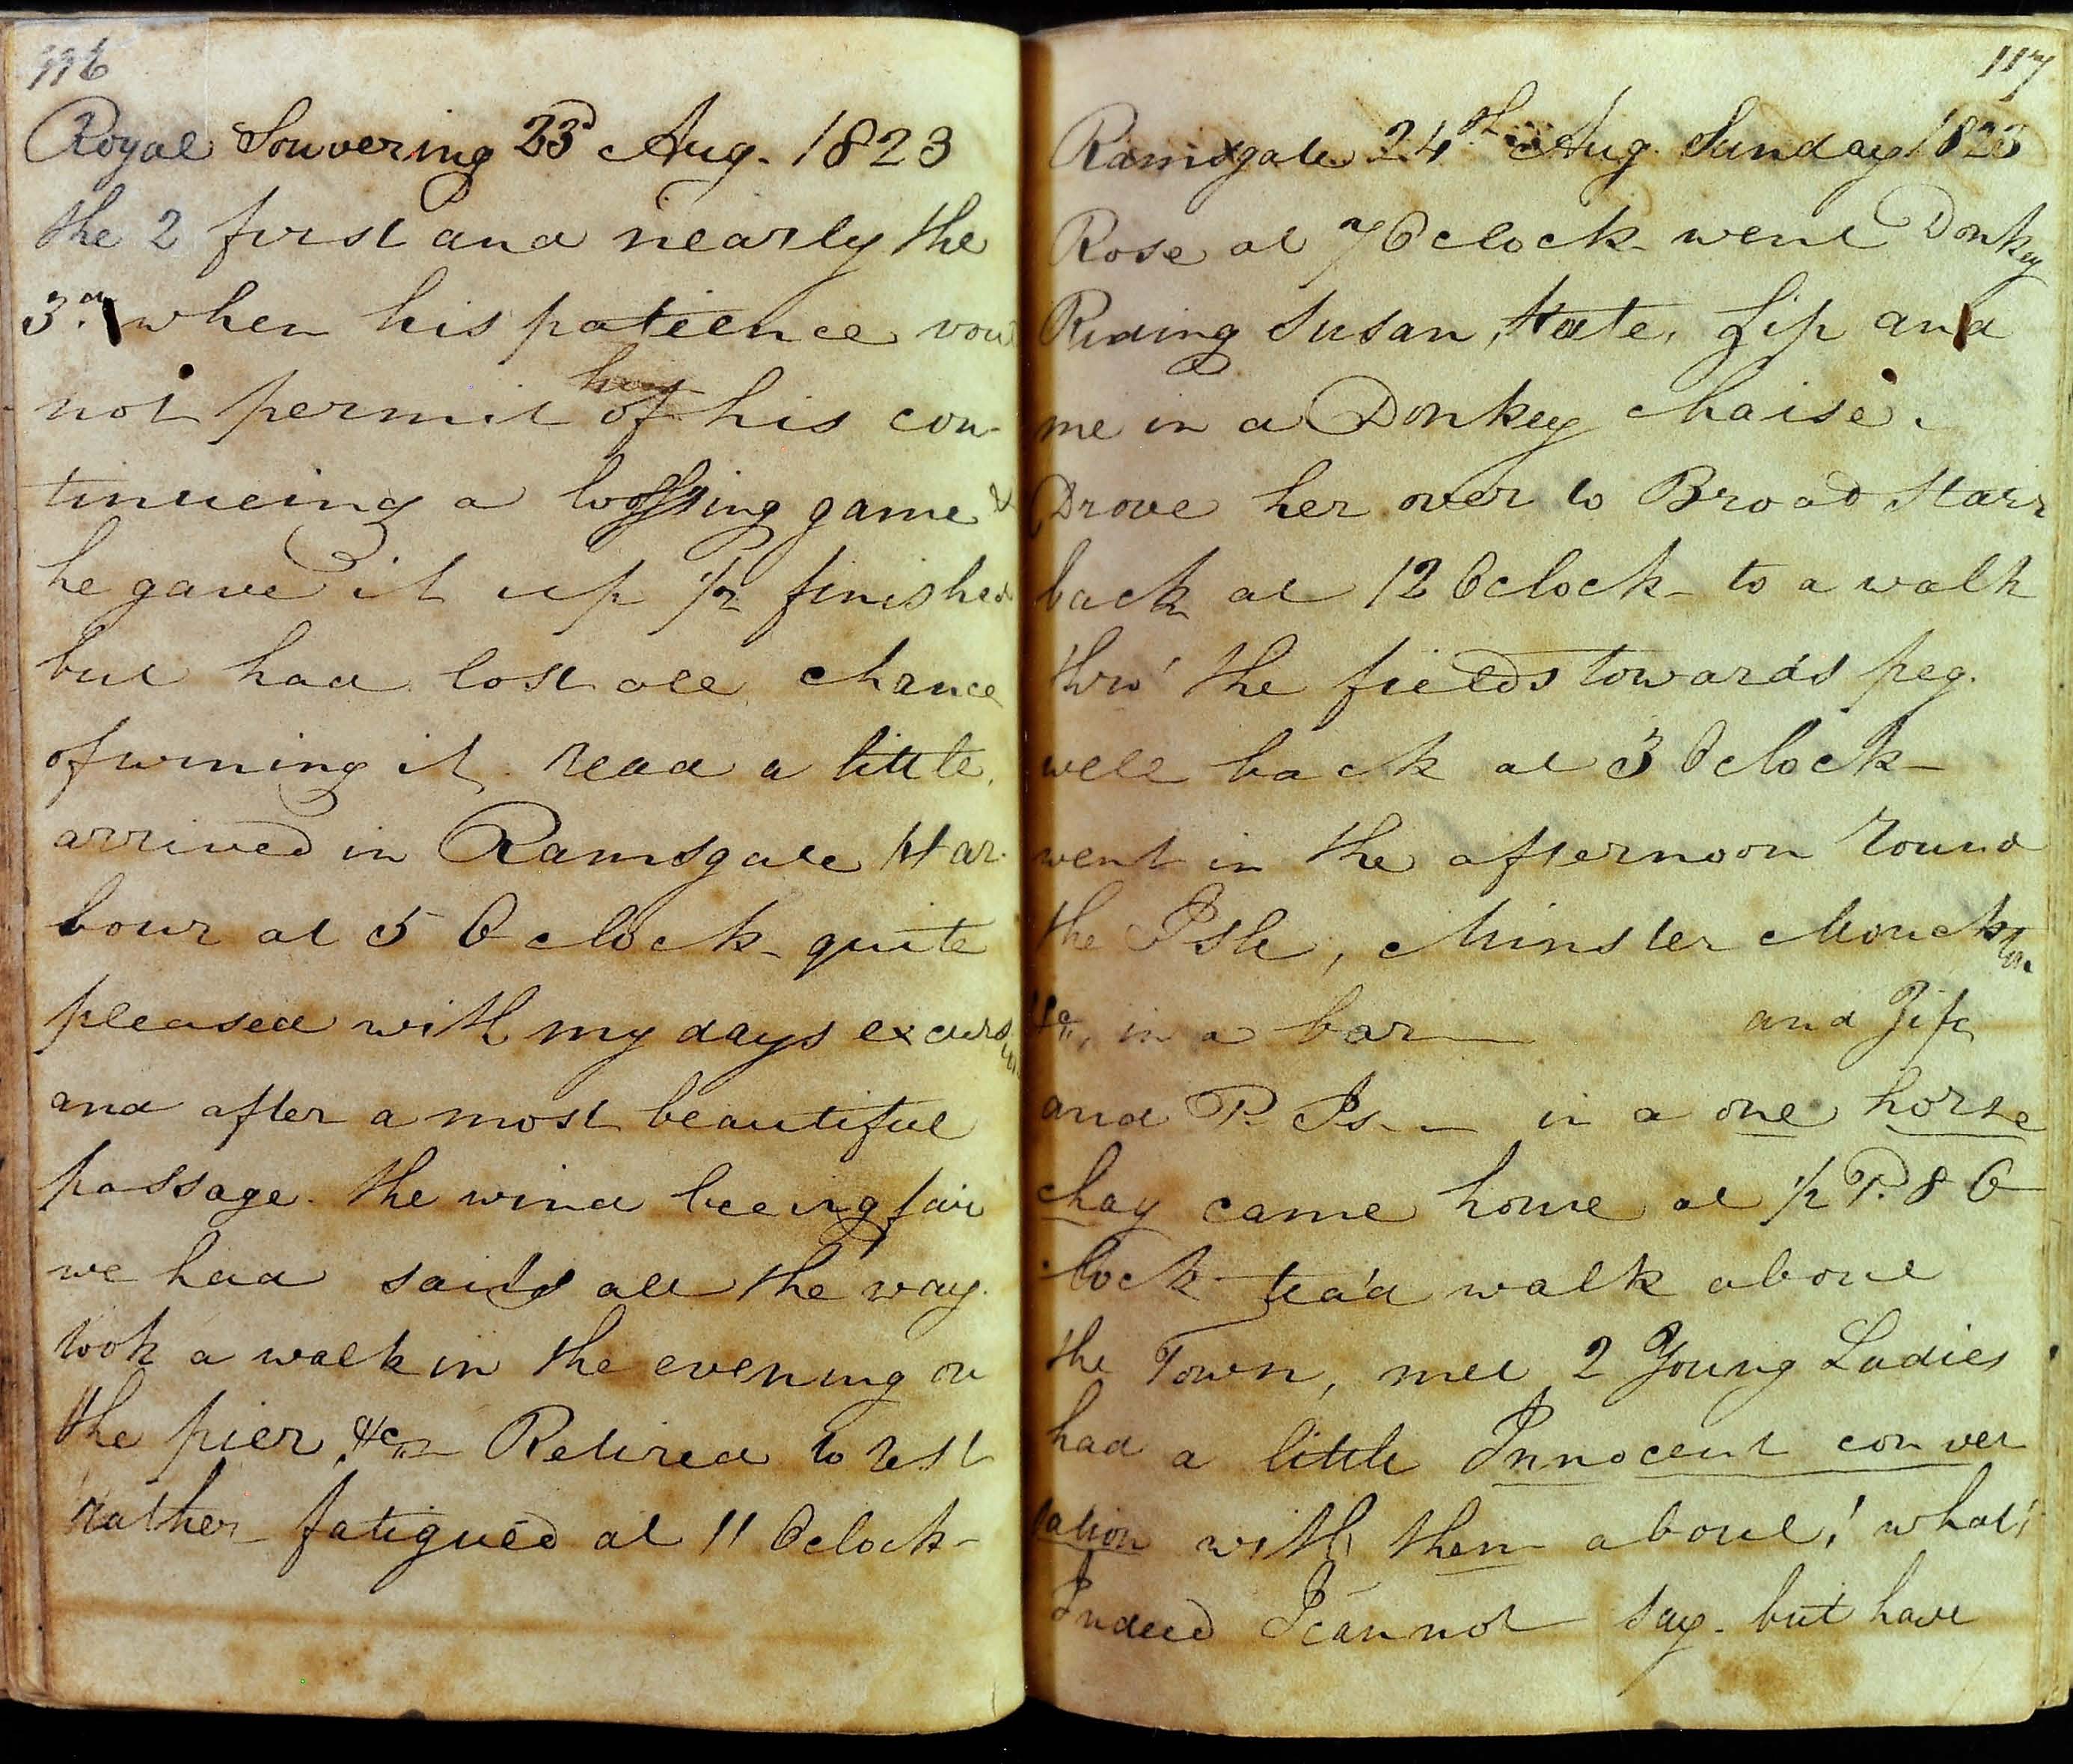 116
Royal Souvering 23d Aug. 1823
the 2 first and nearly the
3.d when his patience wou
not permit of his con-
tinueing a loossing game &
he gave it up 1/2 finished
but had lost all chance
of wining it. read a little.
arrived in Ramsgate Har-
bour at 5 O clock - quite
pleased with my days excursion
and after a most beautiful
passage. the wind beeing fair
we had saild all the way.
took a walk in the evening on
the pier, &c Retired to rest
rather fatigued at 11 Oclock -
117
Ramsgate 24th Aug. Sunday 1823
Rose at 7 Oclock - went Donkey
Riding Susan, Kate, Zip and
me in a Donkey chaise.
Drove her over to Broad Stairs
back at 12 Oclock - to a walk
thro' the fields towards peg.
well back at 3 Oclock -
went in the afternoon round
the Isle, Minster Monckton
&c, in a bar — and Zip
and P. Is — in a one horse
chay came home at 1/2 P. 8 O
clock - tea'd walk about
the Town, met 2 Young Ladies
had a little Innocent conver
sation with them about! what!
Indeed I cannot say - but have